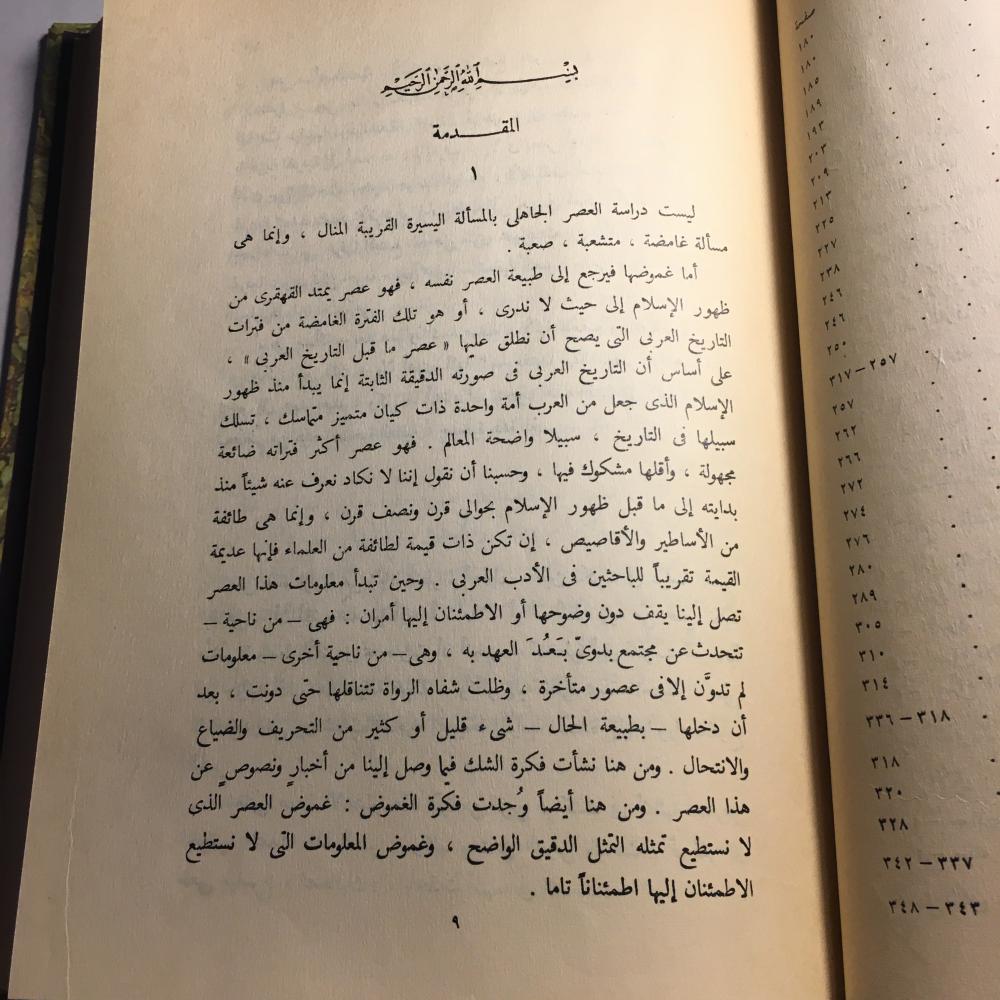 بسم الله الرحمن الرحيم
المقدمة
١
ليست دراسة العصر الجاهلى بالمسألة اليسيرة القريبة المنال ، وإنما هى
مسألة غامضة ، متشعبة ، صعبة .
أما غموضها فيرجع إلى طبيعة العصر نفسه ، فهو عصر يمتد القهقرى من
ظهور الإسلام إلى حيث لا ندرى ، أو هو تلك الفترة الغامضة من فترات
التاريخ العربى التى يصح أن نطلق عليها « عصر ما قبل التاريخ العربى » ،
على أساس أن التاريخ العربى فى صورته الدقيقة الثابتة إنما يبدأ منذ ظهور
الإسلام الذى جعل من العرب أمة واحدة ذات كيان متميز متماسك ، تسلك
سبيلها فى التاريخ ، سبيلا واضحة المعالم . فهو عصر أكثر فتراته ضائعة
مجهولة ، وأقلها مشكوك فيها ، وحسبنا أن نقول إننا لا نكاد نعرف عنه شيئاً منذ
بدايته إلى ما قبل ظهور الإسلام بحوالى قرن ونصف قرن ، وإنما هى طائفة
من الأساطير والأقاصيص ، إن تكن ذات قيمة لطائفة من العلماء فإنها عديمة
القيمة تقريباً للباحثين فى الأدب العربى . وحين تبدأ معلومات هذا العصر
تصل إلينا يقف دون وضوحها أو الاطمئنان إليها أمران : فهى — من ناحية —
تتحدث عن مجتمع بدوىّ بَعُدَ العهد به ، وهى — من ناحية أخرى — معلومات
لم تدوَّن إلا فى عصور متأخرة ، وظلت شفاه الرواة تتناقلها حتى دونت ، بعد
أن دخلها — بطبيعة الحال — شىء قليل أو كثير من التحريف والضياع
والانتحال . ومن هنا نشأت فكرة الشك فيما وصل إلينا من أخبارٍ ونصوصٍ عن
هذا العصر . ومن هنا أيضاً وُجدت فكرة الغموض : غموض العصر الذى
لا نستطيع تمثله التمثل الدقيق الواضح ، وغموض المعلومات التى لا نستطيع
الاطمئنان إليها اطمئناناً تاما .
٩
صفحة
١٨٠
١٨٠
١٨٥
١٨٩
١٩٣
٢٠٣
٢٠٩
٢١٣
٢٢٥
٢٢٧
٢٣٨
٢٤٦
٢٤٦
٢٥٠
٢٥٧ — ٣١٧
٢٥٧
٢٦٢
٢٦٦
٢٧٢
٢٧٤
٢٧٦
٢٨٠
٢٨٩
٣٠٥
٣١٠
٣١٤
٣١٨ — ٣٣٦
٣١٨
٣٢٠
٣٢٨
٣٣٧ — ٣٤٢
٣٤٣ — ٣٤٨